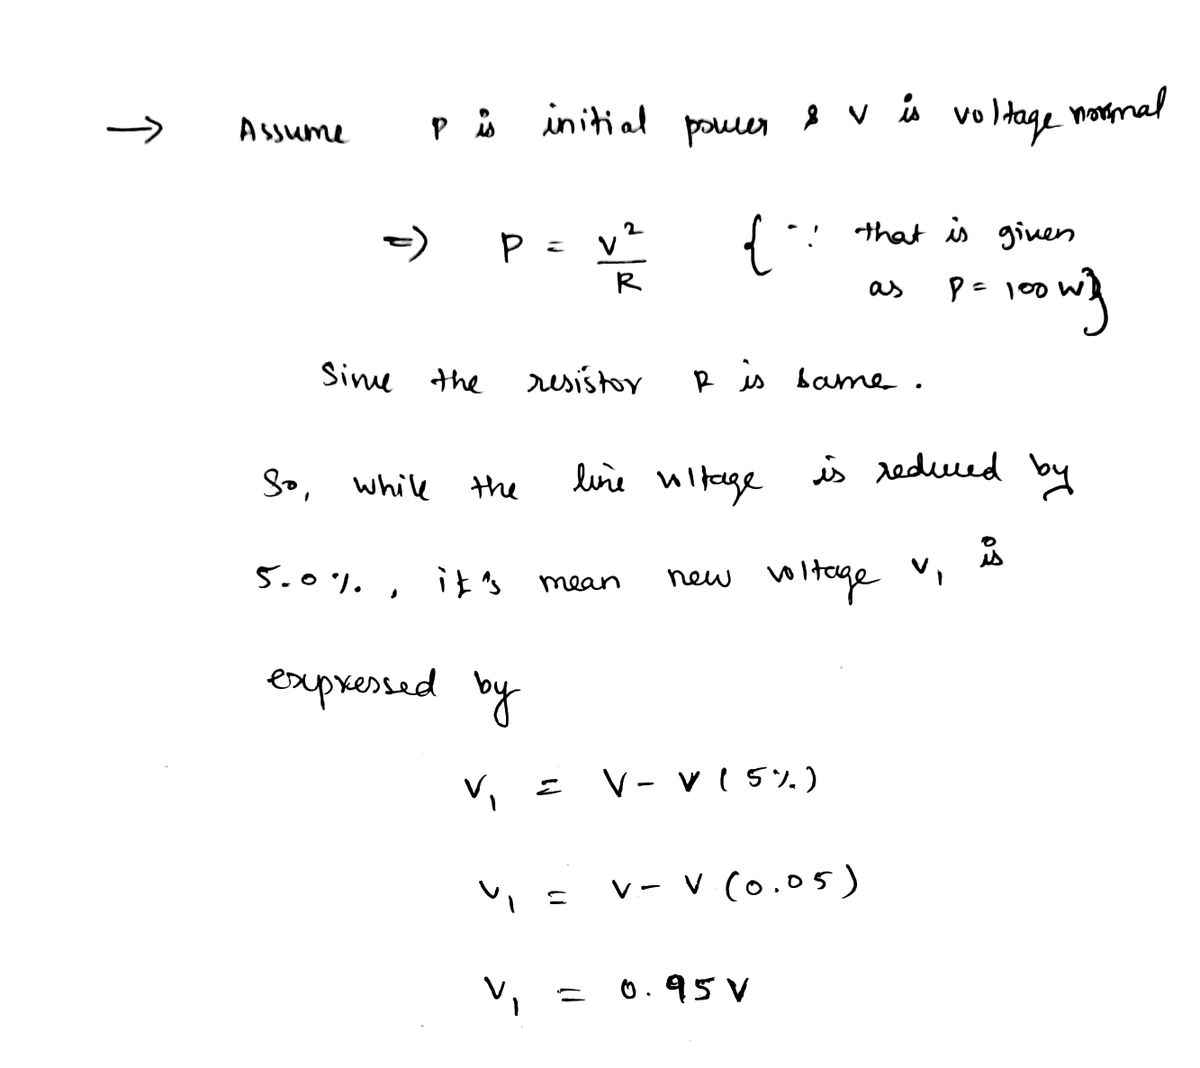 → Assume P is initial power & V is voltage normal
=> P = V²/R {∵ that is given
as P = 100 W}
Since the resistor R is same.
So, while the line voltage is reduced by
5.0%, it's mean new voltage V₁ is
expressed by
V₁ = V - V (5%)
V₁ = V - V (0.05)
V₁ = 0.95 V